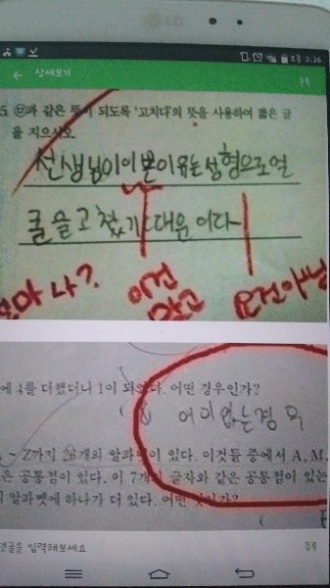 상세보기
5. ㉠과 같은 뜻이 되도록 '고치다'의 뜻을 사용하여 짧은 글
을 지으시오.
선생님이 이쁜이유는 성형으로 얼
굴을 고쳤기 때문 이다
이건
맞고
요건 아님
에 4를 더했더니 1이 되었다. 어떤 경우인가?
어이 없는 경우
~ Z까지 26개의 알파벳이 있다. 이것들 중에서 A, M,
은 공통점이 있다. 이 7개의 글자와 같은 공통점이 있는
알파벳에 하나가 더 있다. 어떤 것인가?
댓글을 입력해보세요
등록